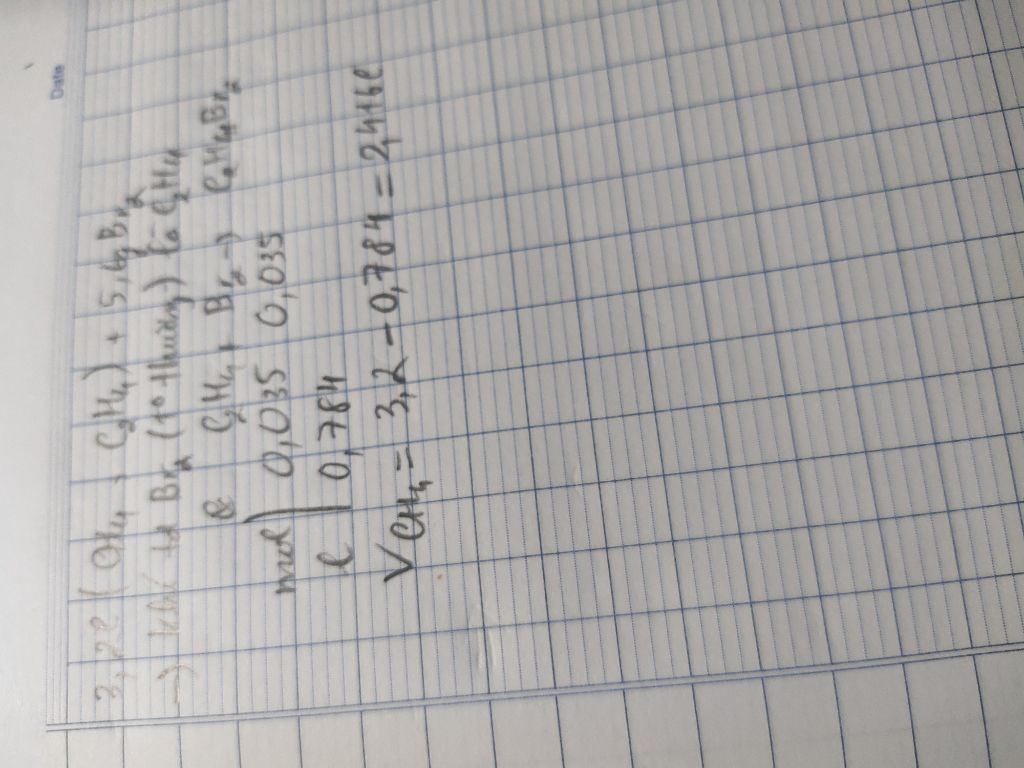 Date
3,2l (CH4, C2H4) + 5,6g Br2
Br2 là C2H4
C2H4 + Br2 → C2H4Br2
mol) 0,035 0,035
l | 0,784
VCH4 = 3,2 - 0,784 = 2,416l